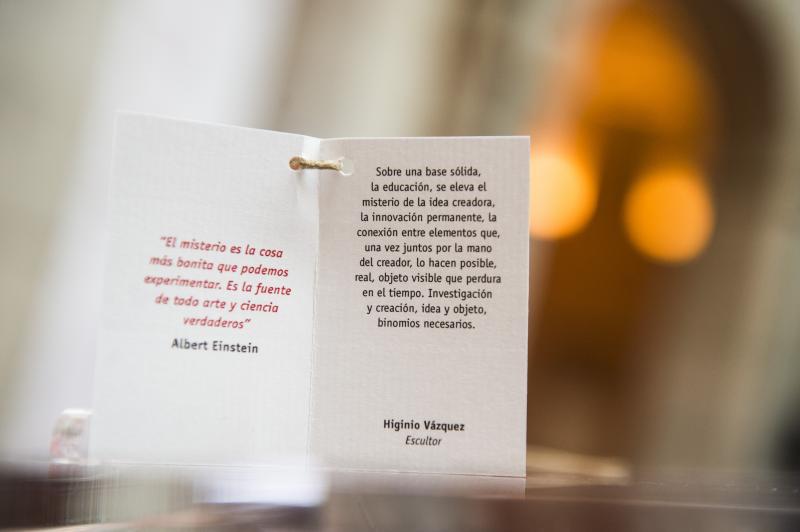 "El misterio es la cosa
más bonita que podemos
experimentar. Es la fuente
de todo arte y ciencia
verdaderos"
Albert Einstein
Sobre una base sólida,
la educación, se eleva el
misterio de la idea creadora,
la innovación permanente, la
conexión entre elementos que,
una vez juntos por la mano
del creador, lo hacen posible,
real, objeto visible que perdura
en el tiempo. Investigación
y creación, idea y objeto,
binomios necesarios.
Higinio Vázquez
Escultor